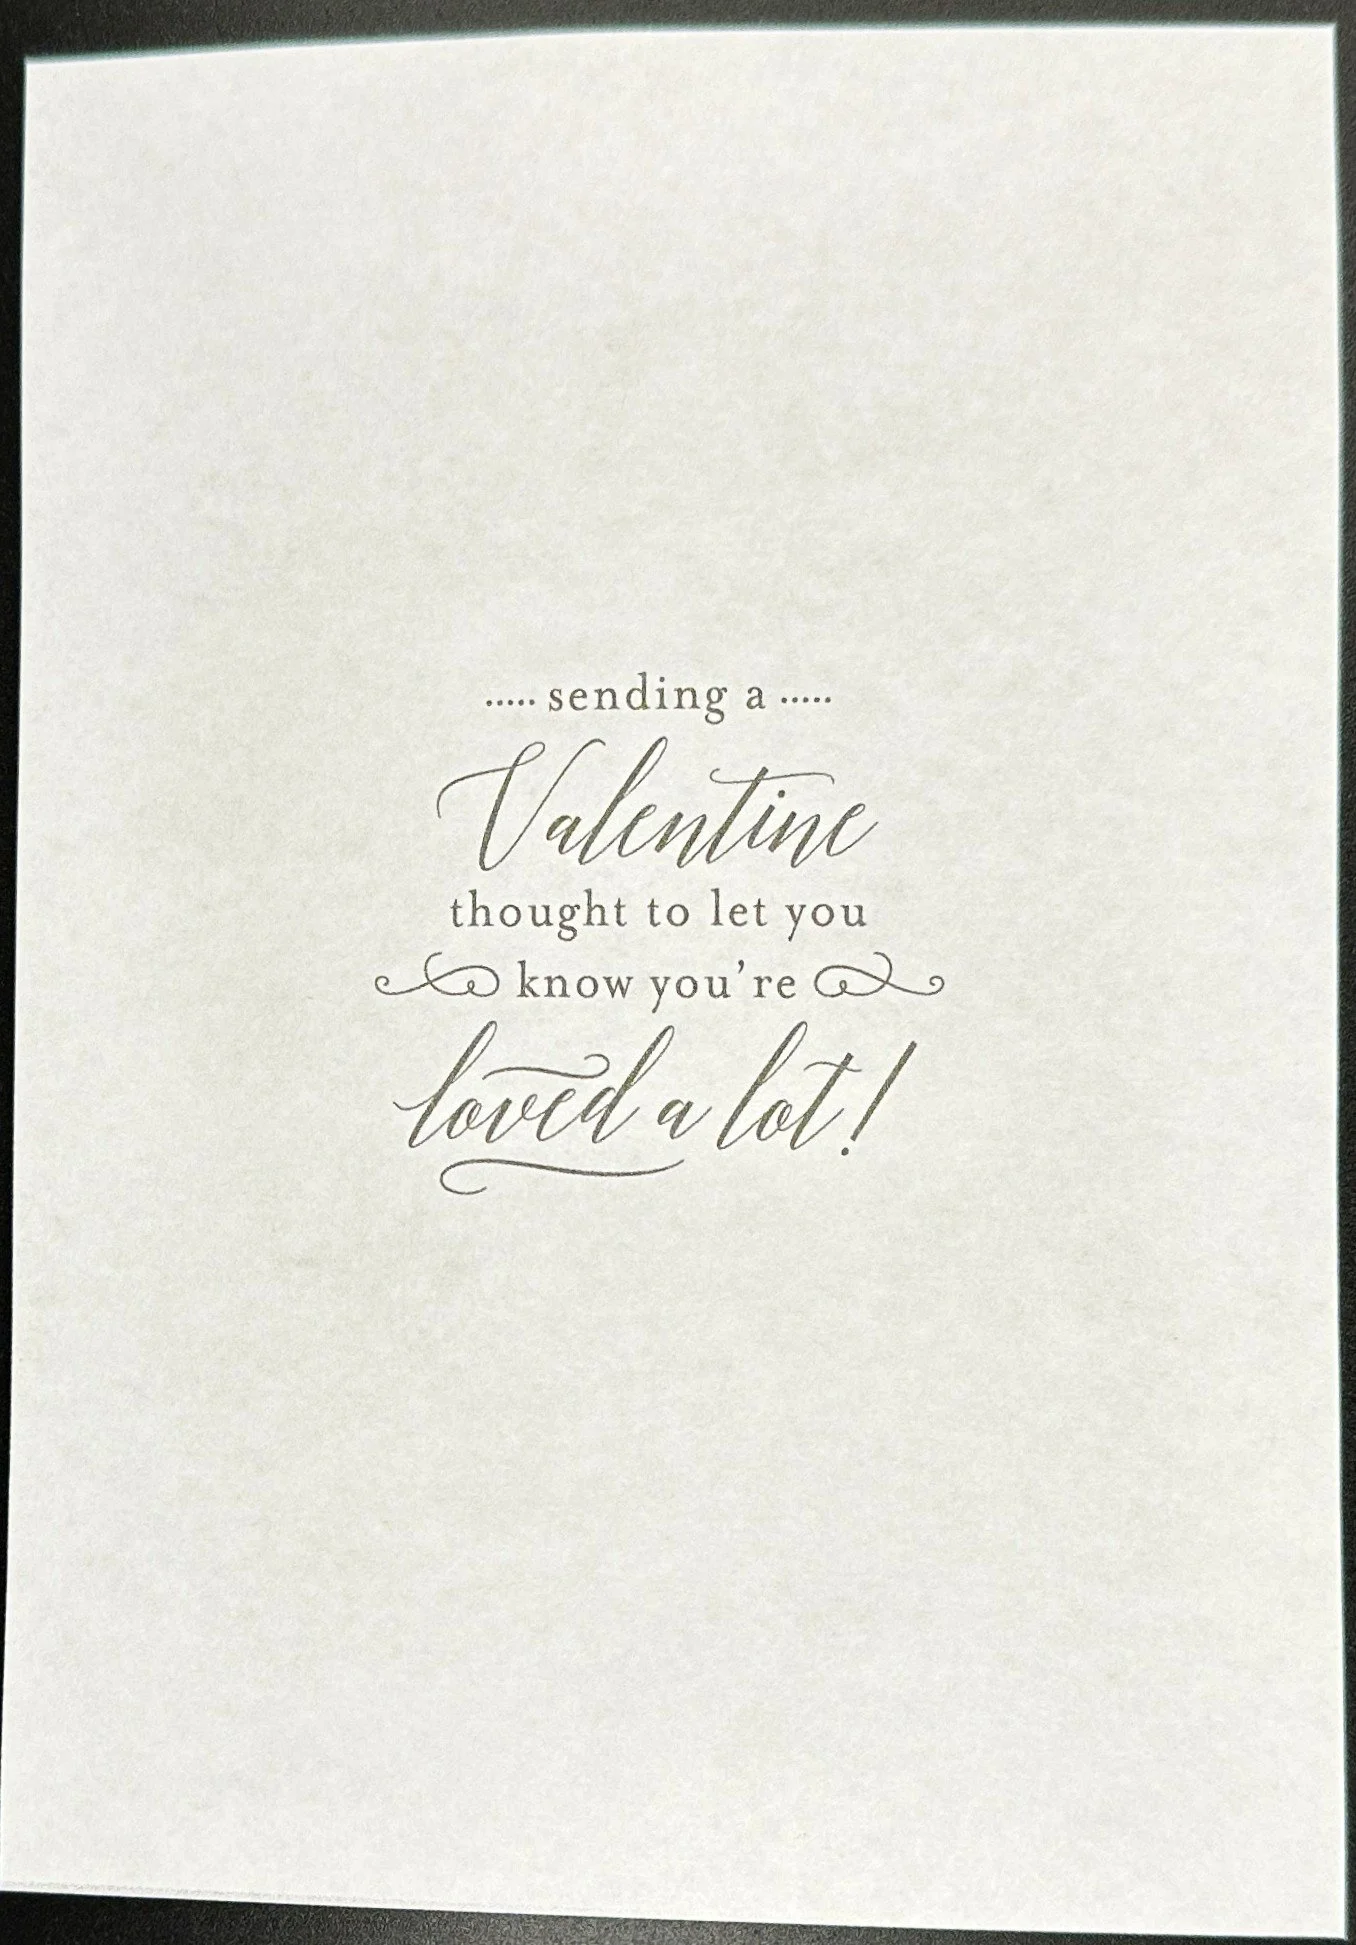 ..... sending a .....
Valentine
thought to let you
know you're
loved a lot!